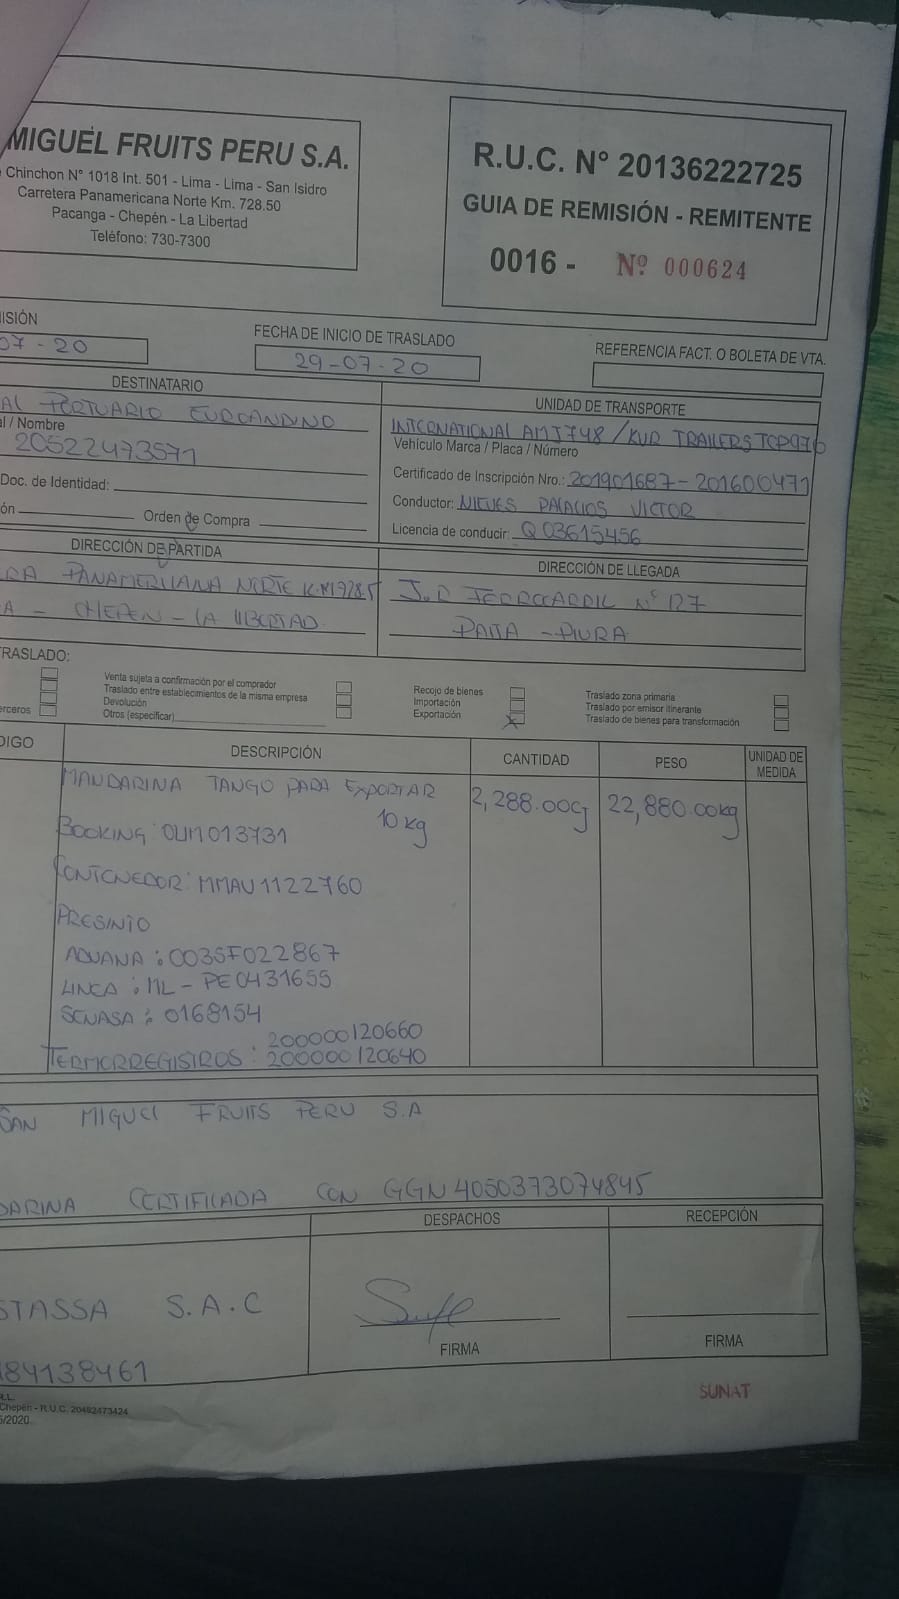 MIGUEL FRUITS PERU S.A.
Chinchon N° 1018 Int. 501 - Lima - Lima - San Isidro
Carretera Panamericana Norte Km. 728.50
Pacanga - Chepén - La Libertad
Teléfono: 730-7300
R.U.C. N° 20136222725
GUIA DE REMISIÓN - REMITENTE
0016 - Nº 000624
ISIÓN
07-20
FECHA DE INICIO DE TRASLADO
29-07-20
REFERENCIA FACT. O BOLETA DE VTA.
DESTINATARIO
AL PORTUARIO EUROANDINO
al / Nombre
20522473571
Doc. de Identidad:
ón Orden de Compra
UNIDAD DE TRANSPORTE
INTERNATIONAL AMJ748 / KUR TRAILERS TCP976
Vehículo Marca / Placa / Número
Certificado de Inscripción Nro.: 201901687-201600471
Conductor: NIEVES PALACIOS VICTOR
Licencia de conducir: Q03615456
DIRECCIÓN DE PARTIDA
RA PANAMERICANA NORTE K.M 728.5
A - CHEPEN - LA LIBERTAD
DIRECCIÓN DE LLEGADA
J.R FERROCARRIL Nº 127
PAITA - PIURA
TRASLADO:
erceros
Venta sujeta a confirmación por el comprador
Traslado entre establecimientos de la misma empresa
Devolución
Otros (especificar)
Recojo de bienes
Importación
Exportación X
Traslado zona primaria
Traslado por emisor itinerante
Traslado de bienes para transformación
DIGO DESCRIPCIÓN CANTIDAD PESO UNIDAD DE MEDIDA
MANDARINA TANGO PARA EXPORTAR 2,288.00 22,880.00kg
10 kg
BOOKING: OLIM013731
CONTENEDOR: MMAU1122760
PRESINTO
ADUANA: 003SF022867
LINEA: ML-PE0431655
SENASA: 0168154
200000120660
TERMORREGISTROS: 200000120640
SAN MIGUEL FRUITS PERU S.A
DARINA CERTIFICADA CON GGN 4050373074845
DESPACHOS
RECEPCIÓN
STASSA S.A.C
FIRMA
FIRMA
184138461
R.L.
Chepén - R.U.C. 20482473424
/2020
SUNAT